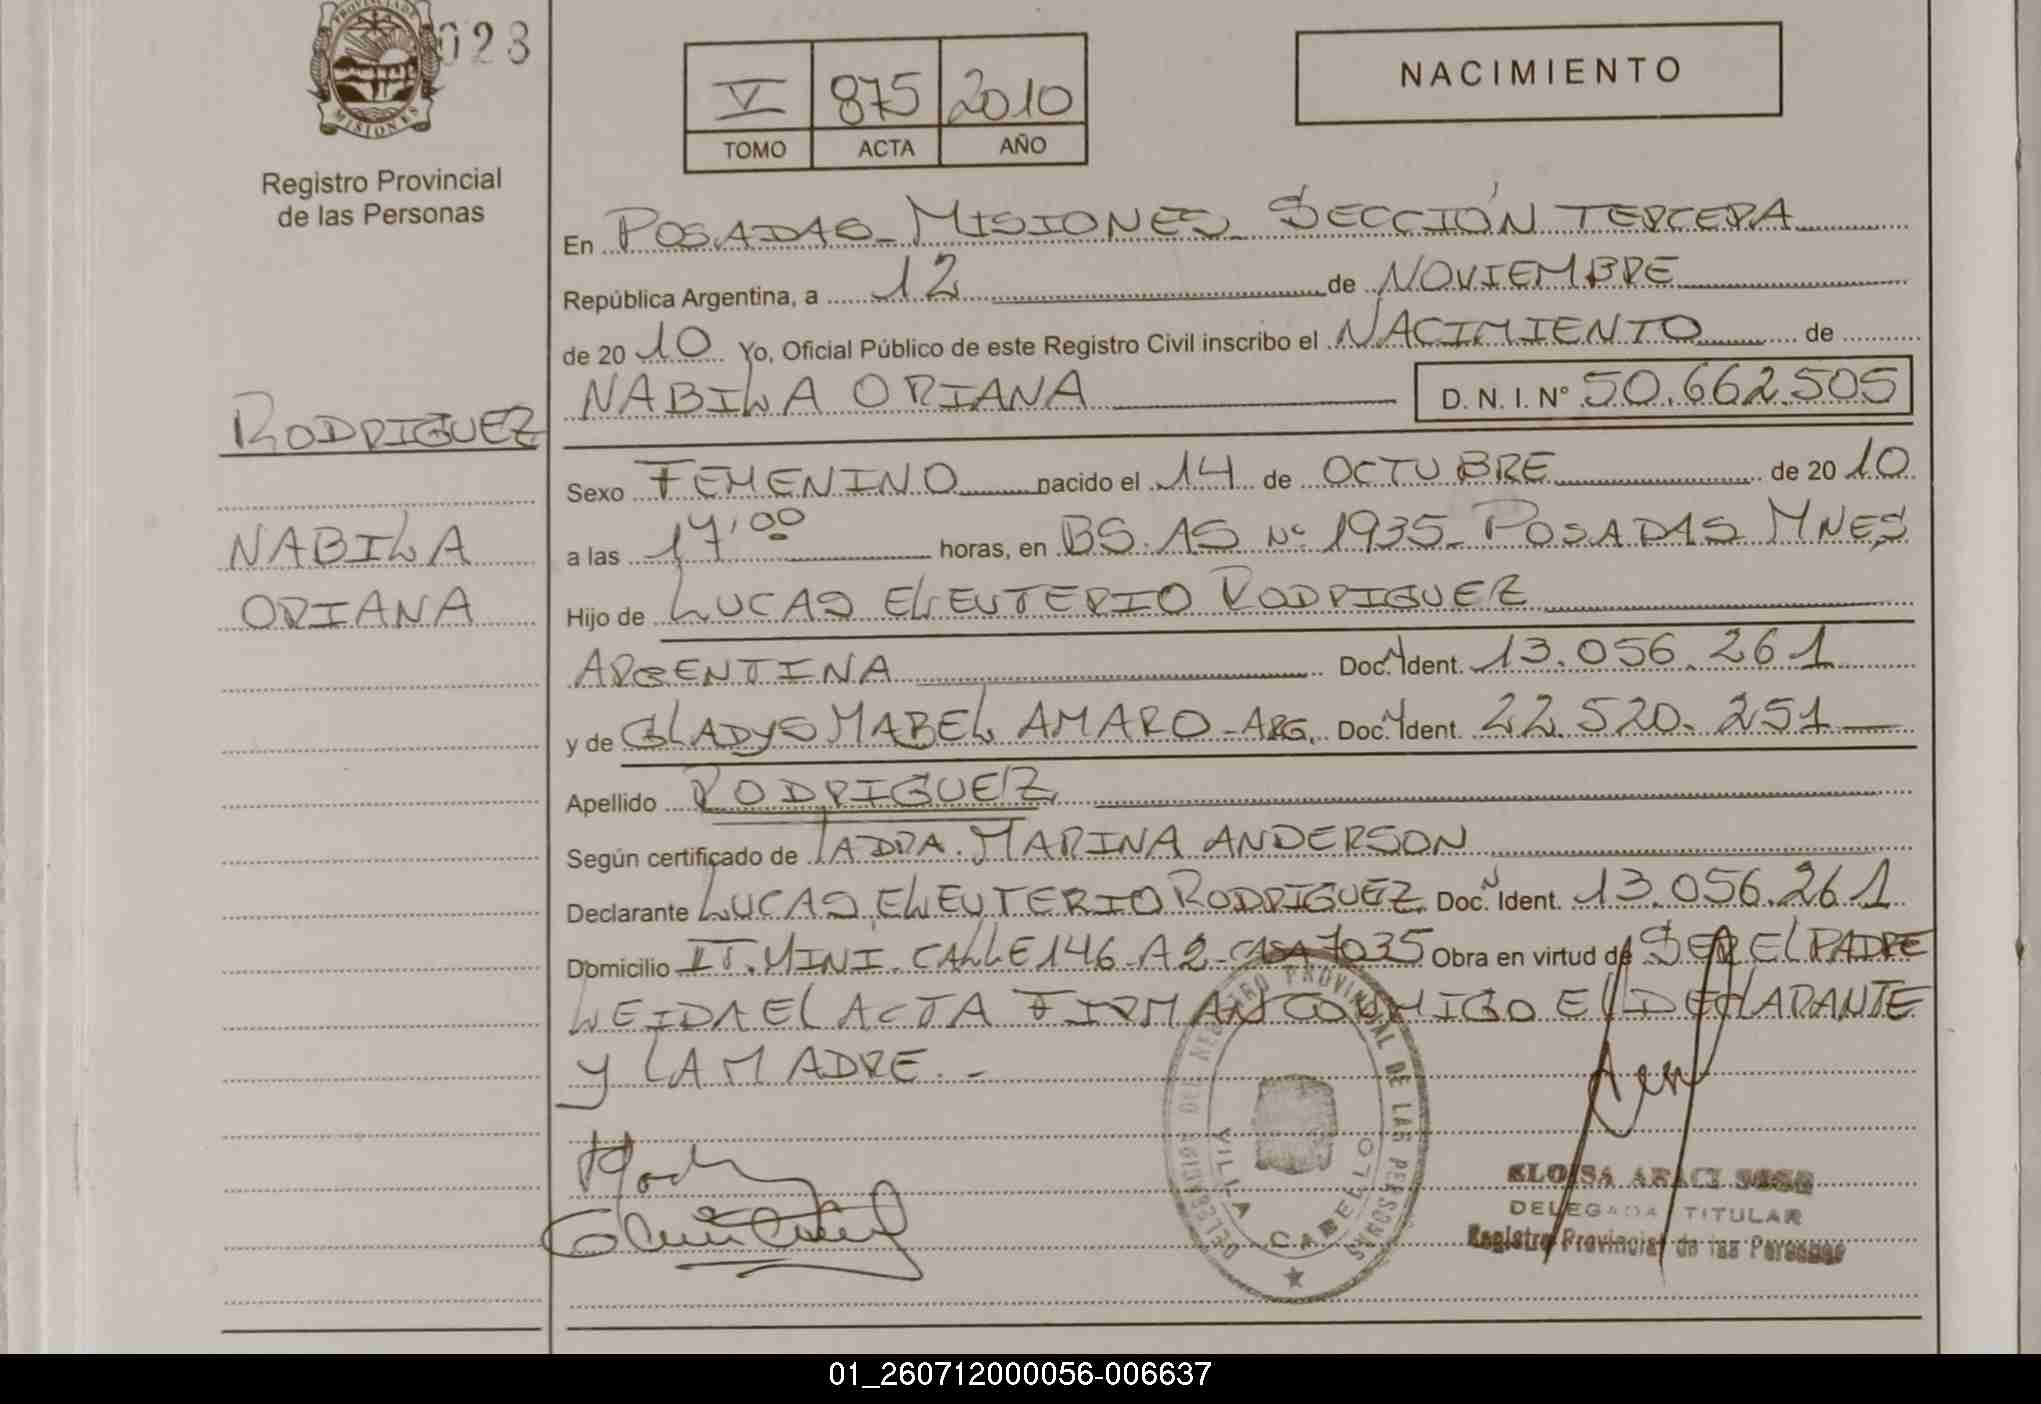 PROVINCIA DE
MISIONES
023
Registro Provincial
de las Personas
V 875 2010
TOMO ACTA AÑO
NACIMIENTO
En POSADAS - MISIONES - SECCIÓN TERCERA
República Argentina, a 12 de NOVIEMBRE
de 20 10 Yo, Oficial Público de este Registro Civil inscribo el NACIMIENTO de
NABILA ORIANA D. N. I. N° 50.662.505
RODRIGUEZ
Sexo FEMENINO nacido el 14 de OCTUBRE de 20 10
NABILA
a las 17,00 horas, en BS. AS Nº 1935 - POSADAS MNES
ORIANA
Hijo de LUCAS ELEUTERIO RODRIGUEZ
ARGENTINA Doc. N Ident. 13.056.261
y de GLADYS MABEL AMARO - ARG. Doc. N Ident. 22.520.251
Apellido RODRIGUEZ
Según certificado de LA DRA. MARINA ANDERSON
Declarante LUCAS ELEUTERIO RODRIGUEZ Doc. N Ident. 13.056.261
Domicilio IT. MINI. CALLE 146 - A 2 - CASA 7035 Obra en virtud de SER EL PADRE
LEIDA EL ACTA FIRMAN CONMIGO EL DECLARANTE
Y LA MADRE. -
DELEGACION DEL REGISTRO PROVINCIAL DE LAS PERSONAS
VILLA CABELLO
ELOISA ARACI
DELEGADA TITULAR
Registro Provincial de las Personas
01_260712000056-006637